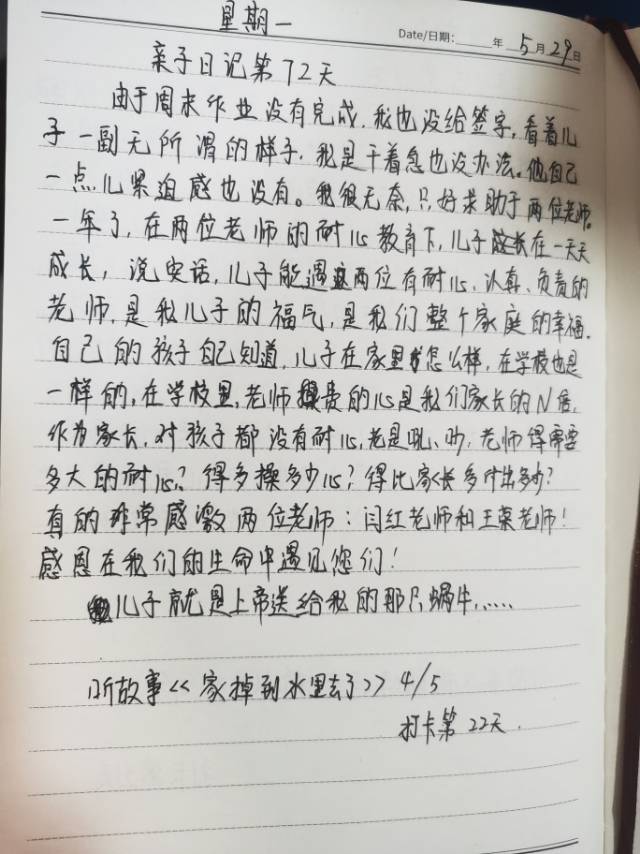 星期一
Date/日期: 年 5月29日
亲子日记第72天
由于周末作业没有完成,我也没给签字,看着儿
子一副无所谓的样子,我是干着急也没办法。他自己
一点儿紧迫感也没有。我很无奈,只好求助于两位老师。
一年了,在两位老师的耐心教育下,儿子在一天天
成长,说实话,儿子能遇这两位有耐心、认真、负责的
老师,是我儿子的福气,是我们整个家庭的幸福.
自己的孩子自己知道,儿子在家里怎么样,在学校也是
一样的,在学校里,老师操的心是我们家长的N倍,
作为家长,对孩子都没有耐心,老是吼、吵,老师得需要
多大的耐心?得多操多少心?得比家长多付出多少?
真的非常感激两位老师:闫红老师和王荣老师!
感恩在我们的生命中遇见您们!
儿子就是上帝送给我的那只蜗牛......
听故事<<家掉到水里去了>> 4/5
打卡第22天.